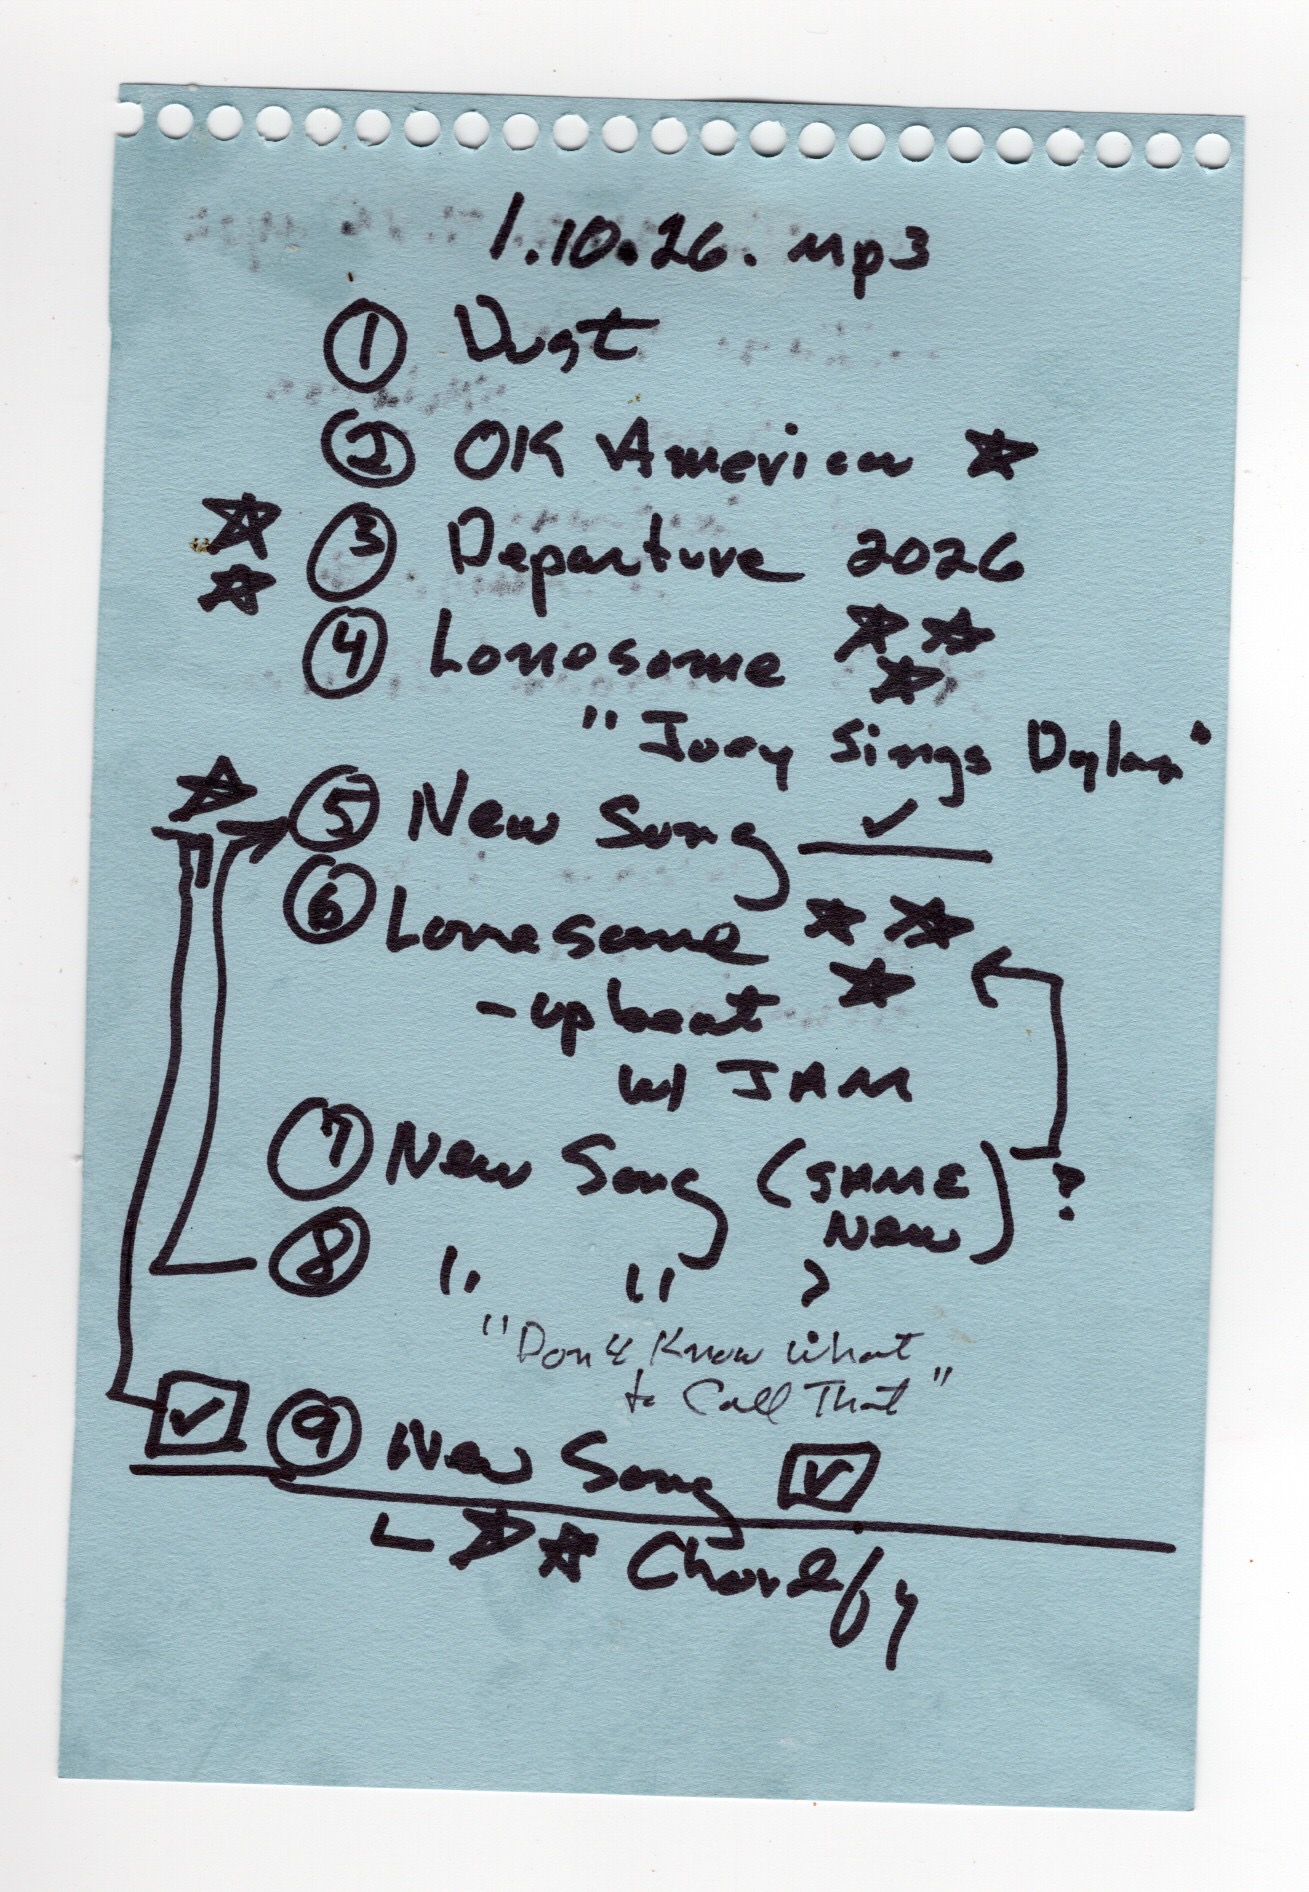 1.10.26.mp3
① Dust
② OK America ★
★★ ③ Departure 2026
④ Lonesome ★★★
"Joey Sings Dylan"
★ ⑤ New Song ✓
⑥ Lonesome ★★★
- upbeat
w/ JAM
⑦ New Song (SAME
New) ?
⑧ " " ?
"Don't Know What
to Call That"
☑ ⑨ New Song ☑
★★ Chordify